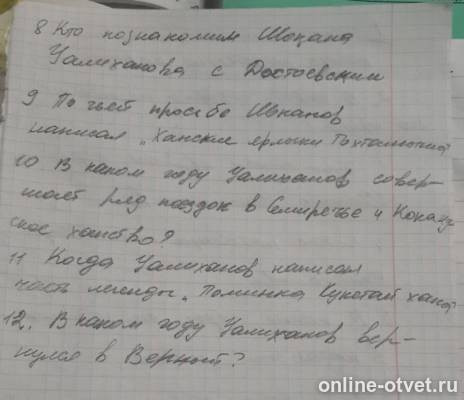 8 Кто познакомил Шокана
Уалиханова с Достоевским
9 По чьей просьбе Шокан
написал „Ханские ярлыки Тохтамыша"
10 В каком году Уалиханов совер-
шает ряд поездок в Семиречье и Коканд-
ское ханство?
11 Когда Уалиханов написал
часть легенды „Поминка Кукотай хана"
12. В каком году Уалиханов вер-
нулся в Верный?
online-otvet.ru